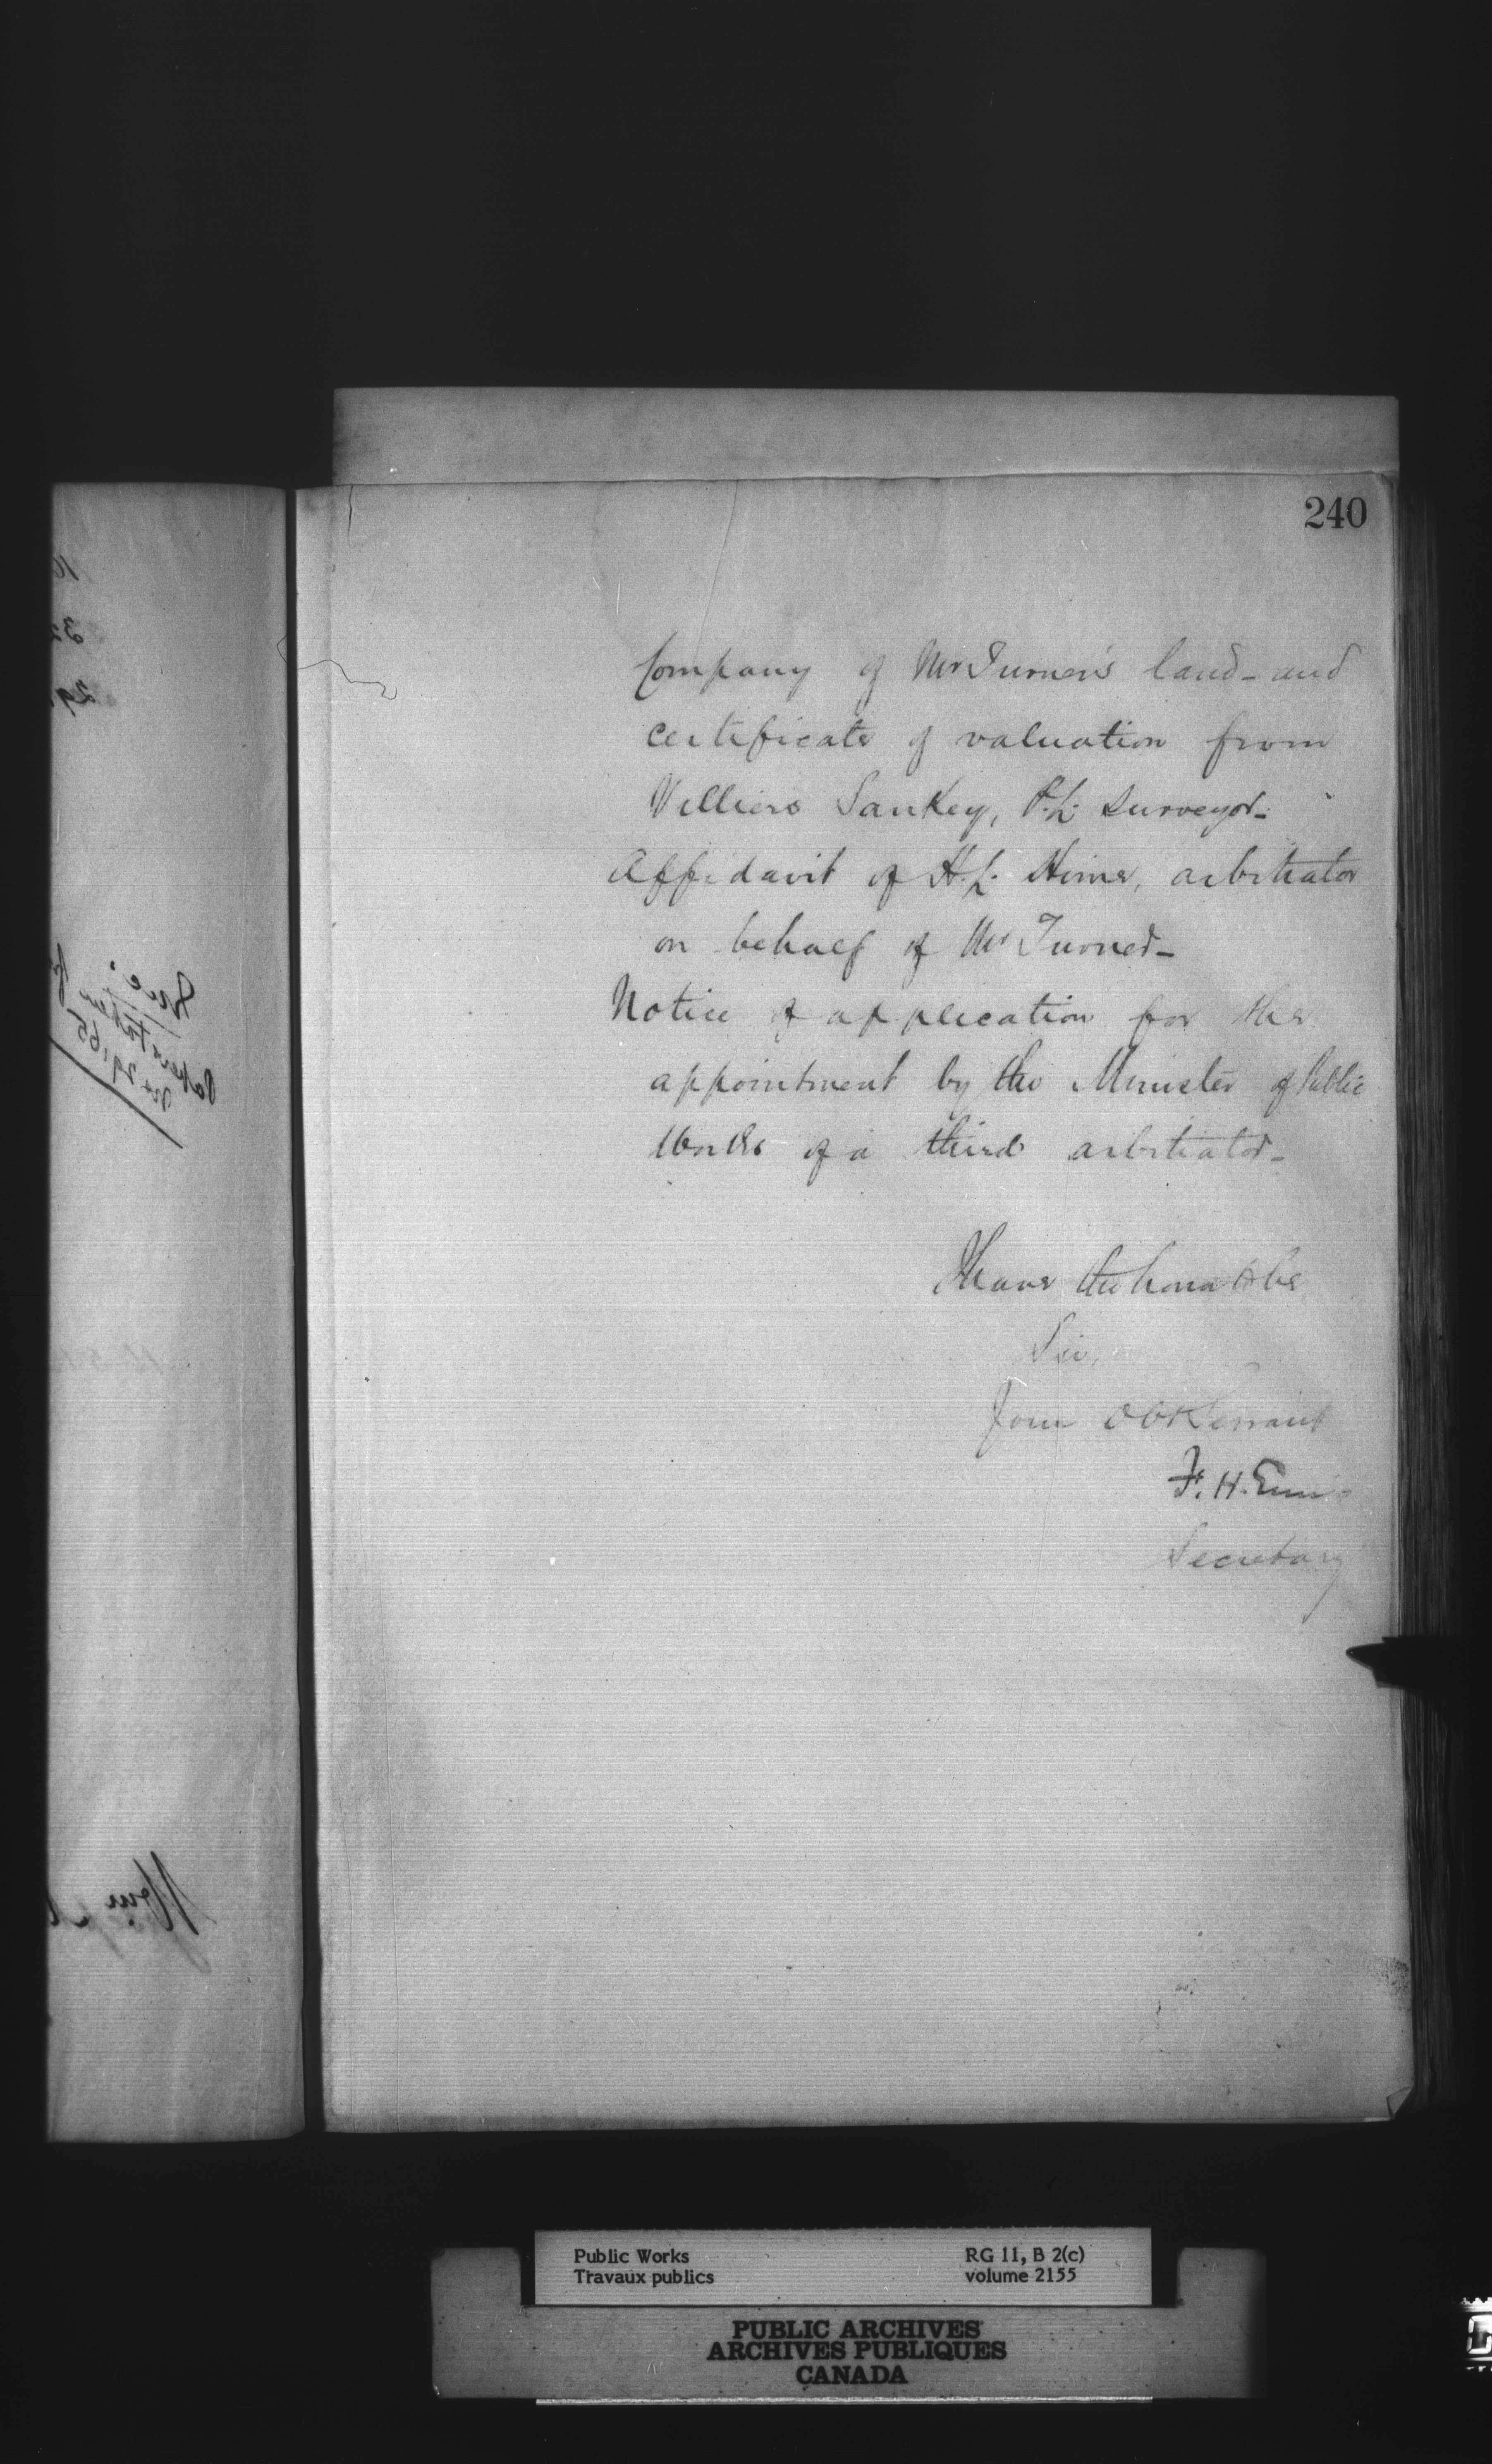 240
Company of Mr Turner's land - and
certificate of valuation from
Villiers Sankey, P.L. Surveyor -
Affidavit of H.L. Hime, arbitrator
on behalf of Mr Turner -
Notice of application for the
appointment by the Minister of Public
Works of a third arbitrator -
I have the honor to be
Sir,
Your Obt Servant
F. H. Ennis
Secretary
Public Works
Travaux publics
RG 11, B 2(c)
volume 2155
PUBLIC ARCHIVES
ARCHIVES PUBLIQUES
CANADA